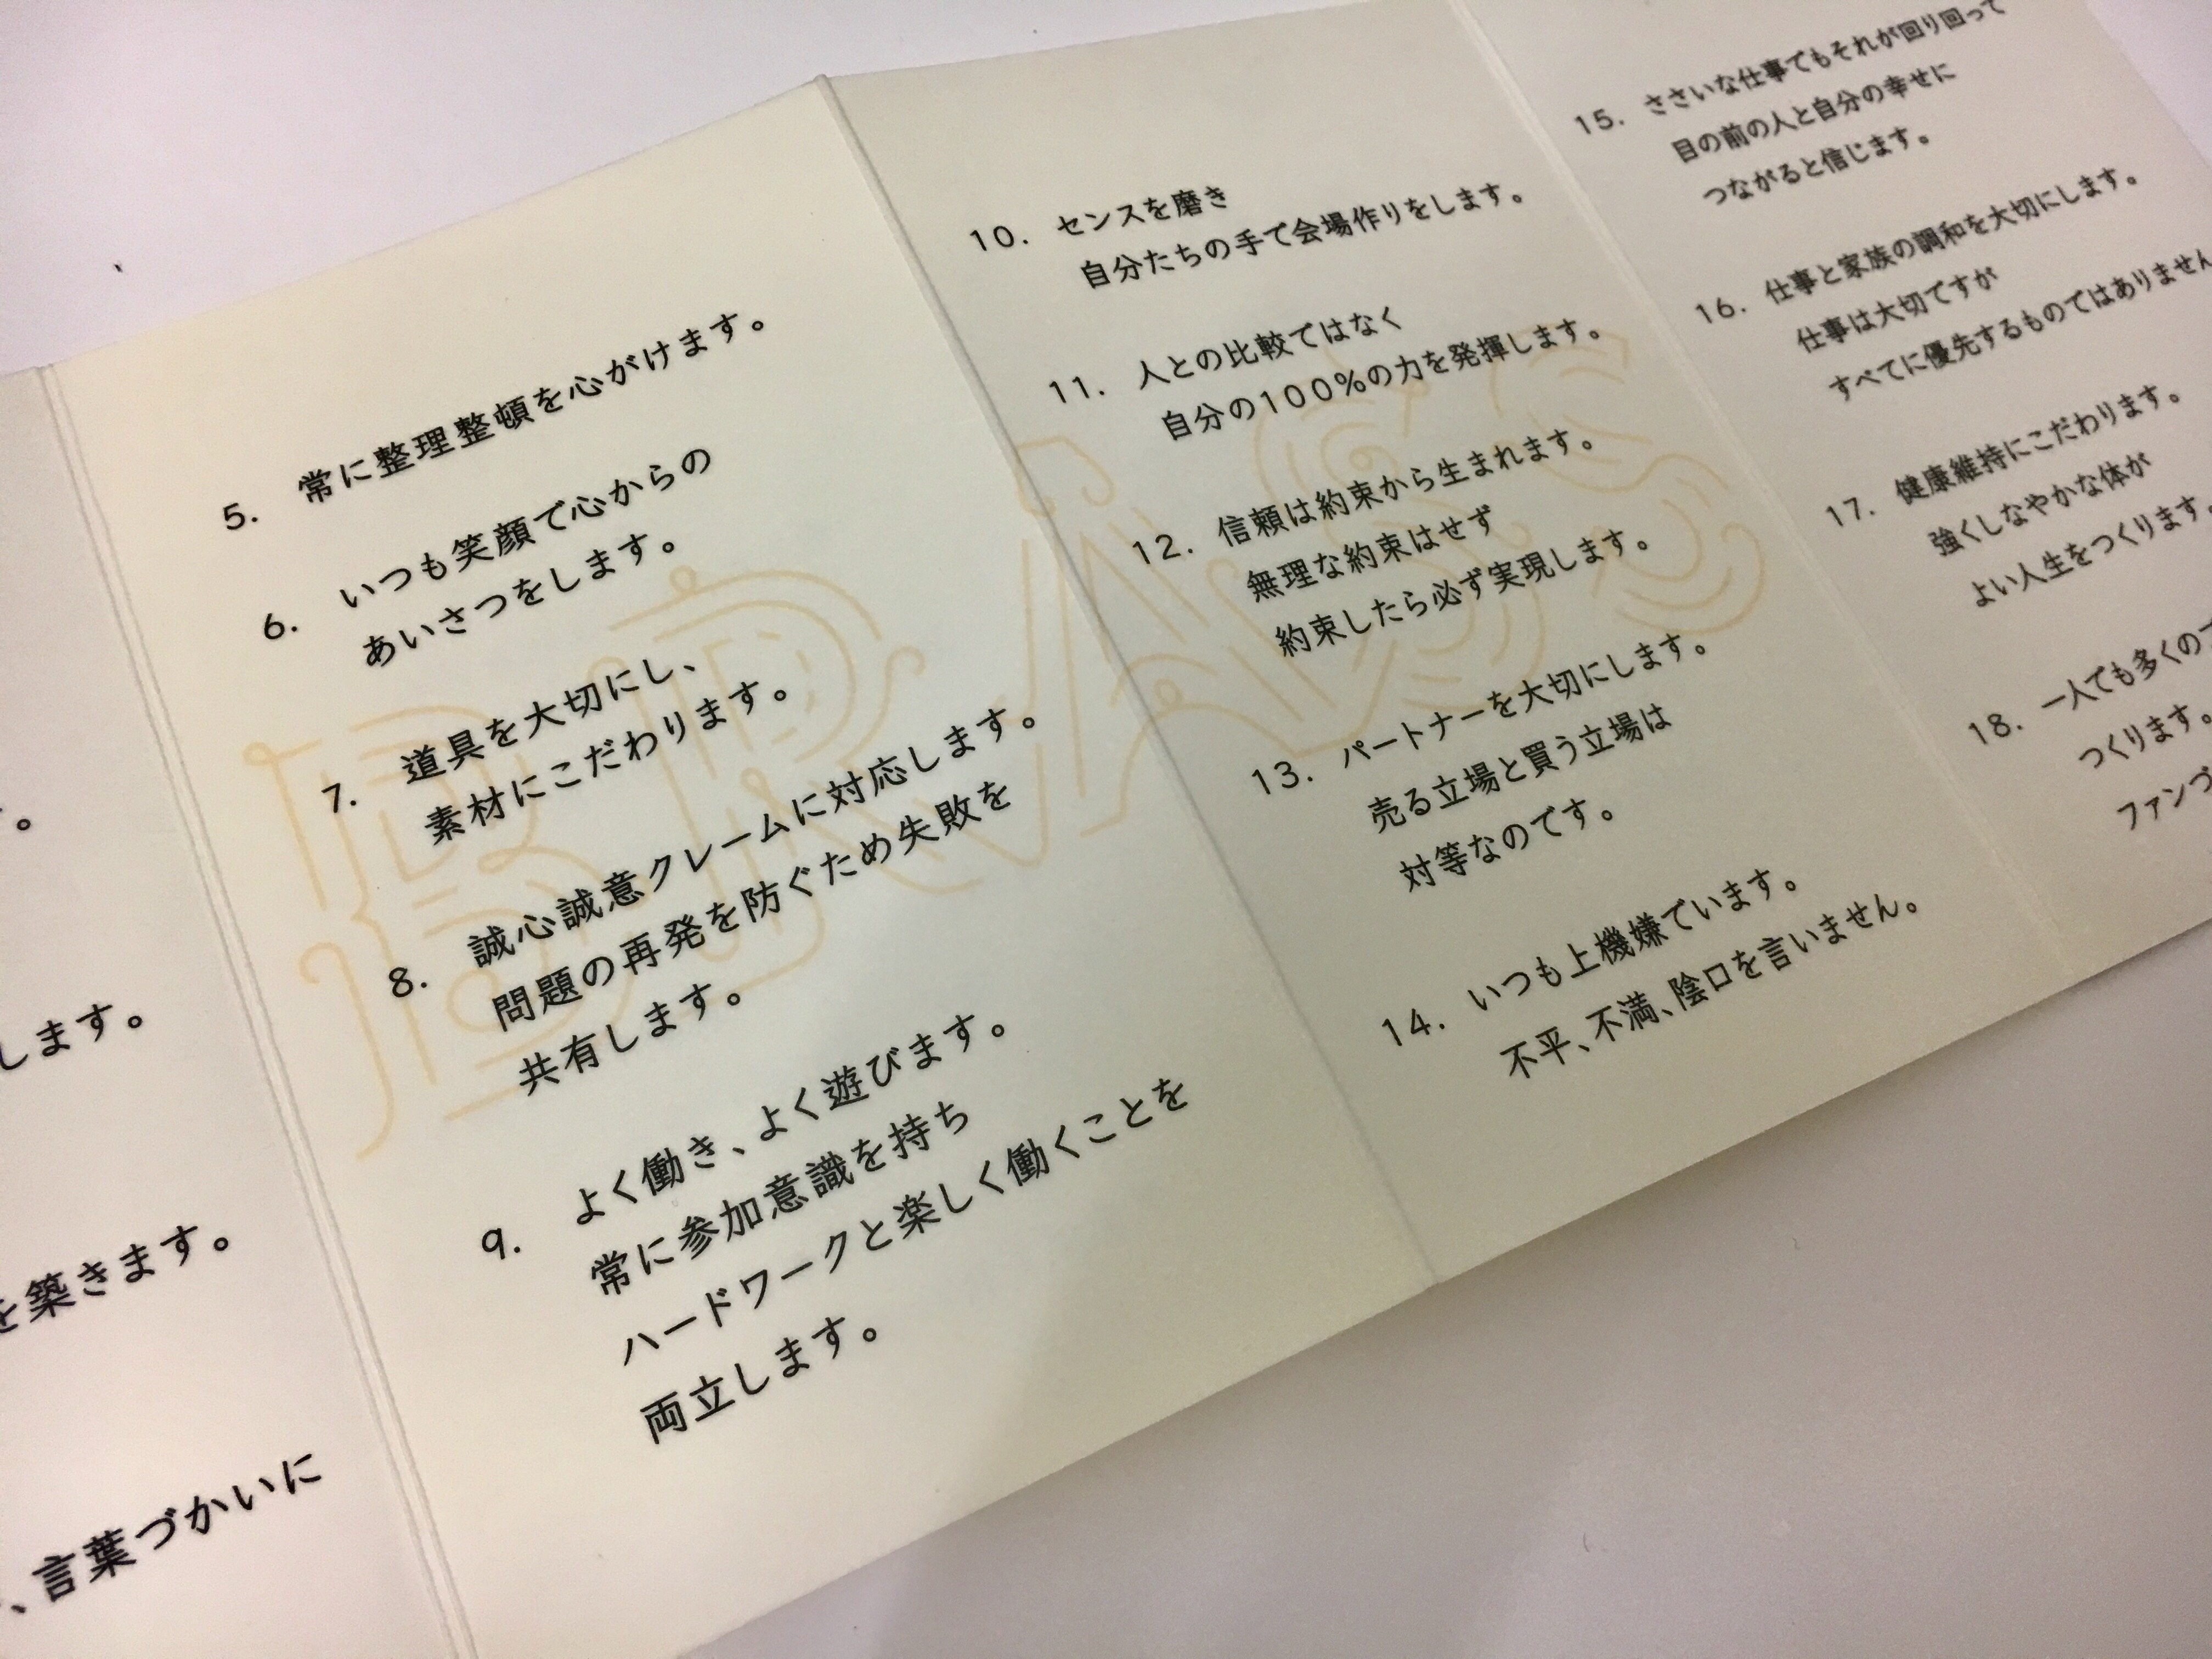 す。
します。
を築きます。
、言葉づかいに
5. 常に整理整頓を心がけます。
6. いつも笑顔で心からの
あいさつをします。
7. 道具を大切にし、
素材にこだわります。
8. 誠心誠意クレームに対応します。
問題の再発を防ぐため失敗を
共有します。
9. よく働き、よく遊びます。
常に参加意識を持ち
ハードワークと楽しく働くことを
両立します。
BRASS
10. センスを磨き
自分たちの手で会場作りをします。
11. 人との比較ではなく
自分の100%の力を発揮します。
12. 信頼は約束から生まれます。
無理な約束はせず
約束したら必ず実現します。
13. パートナーを大切にします。
売る立場と買う立場は
対等なのです。
14. いつも上機嫌でいます。
不平、不満、陰口を言いません。
15. ささいな仕事でもそれが回り回って
目の前の人と自分の幸せに
つながると信じます。
16. 仕事と家族の調和を大切にします。
仕事は大切ですが
すべてに優先するものではありません
17. 健康維持にこだわります。
強くしなやかな体が
よい人生をつくります。
18. 一人でも多くの
つくります。
ファンづ